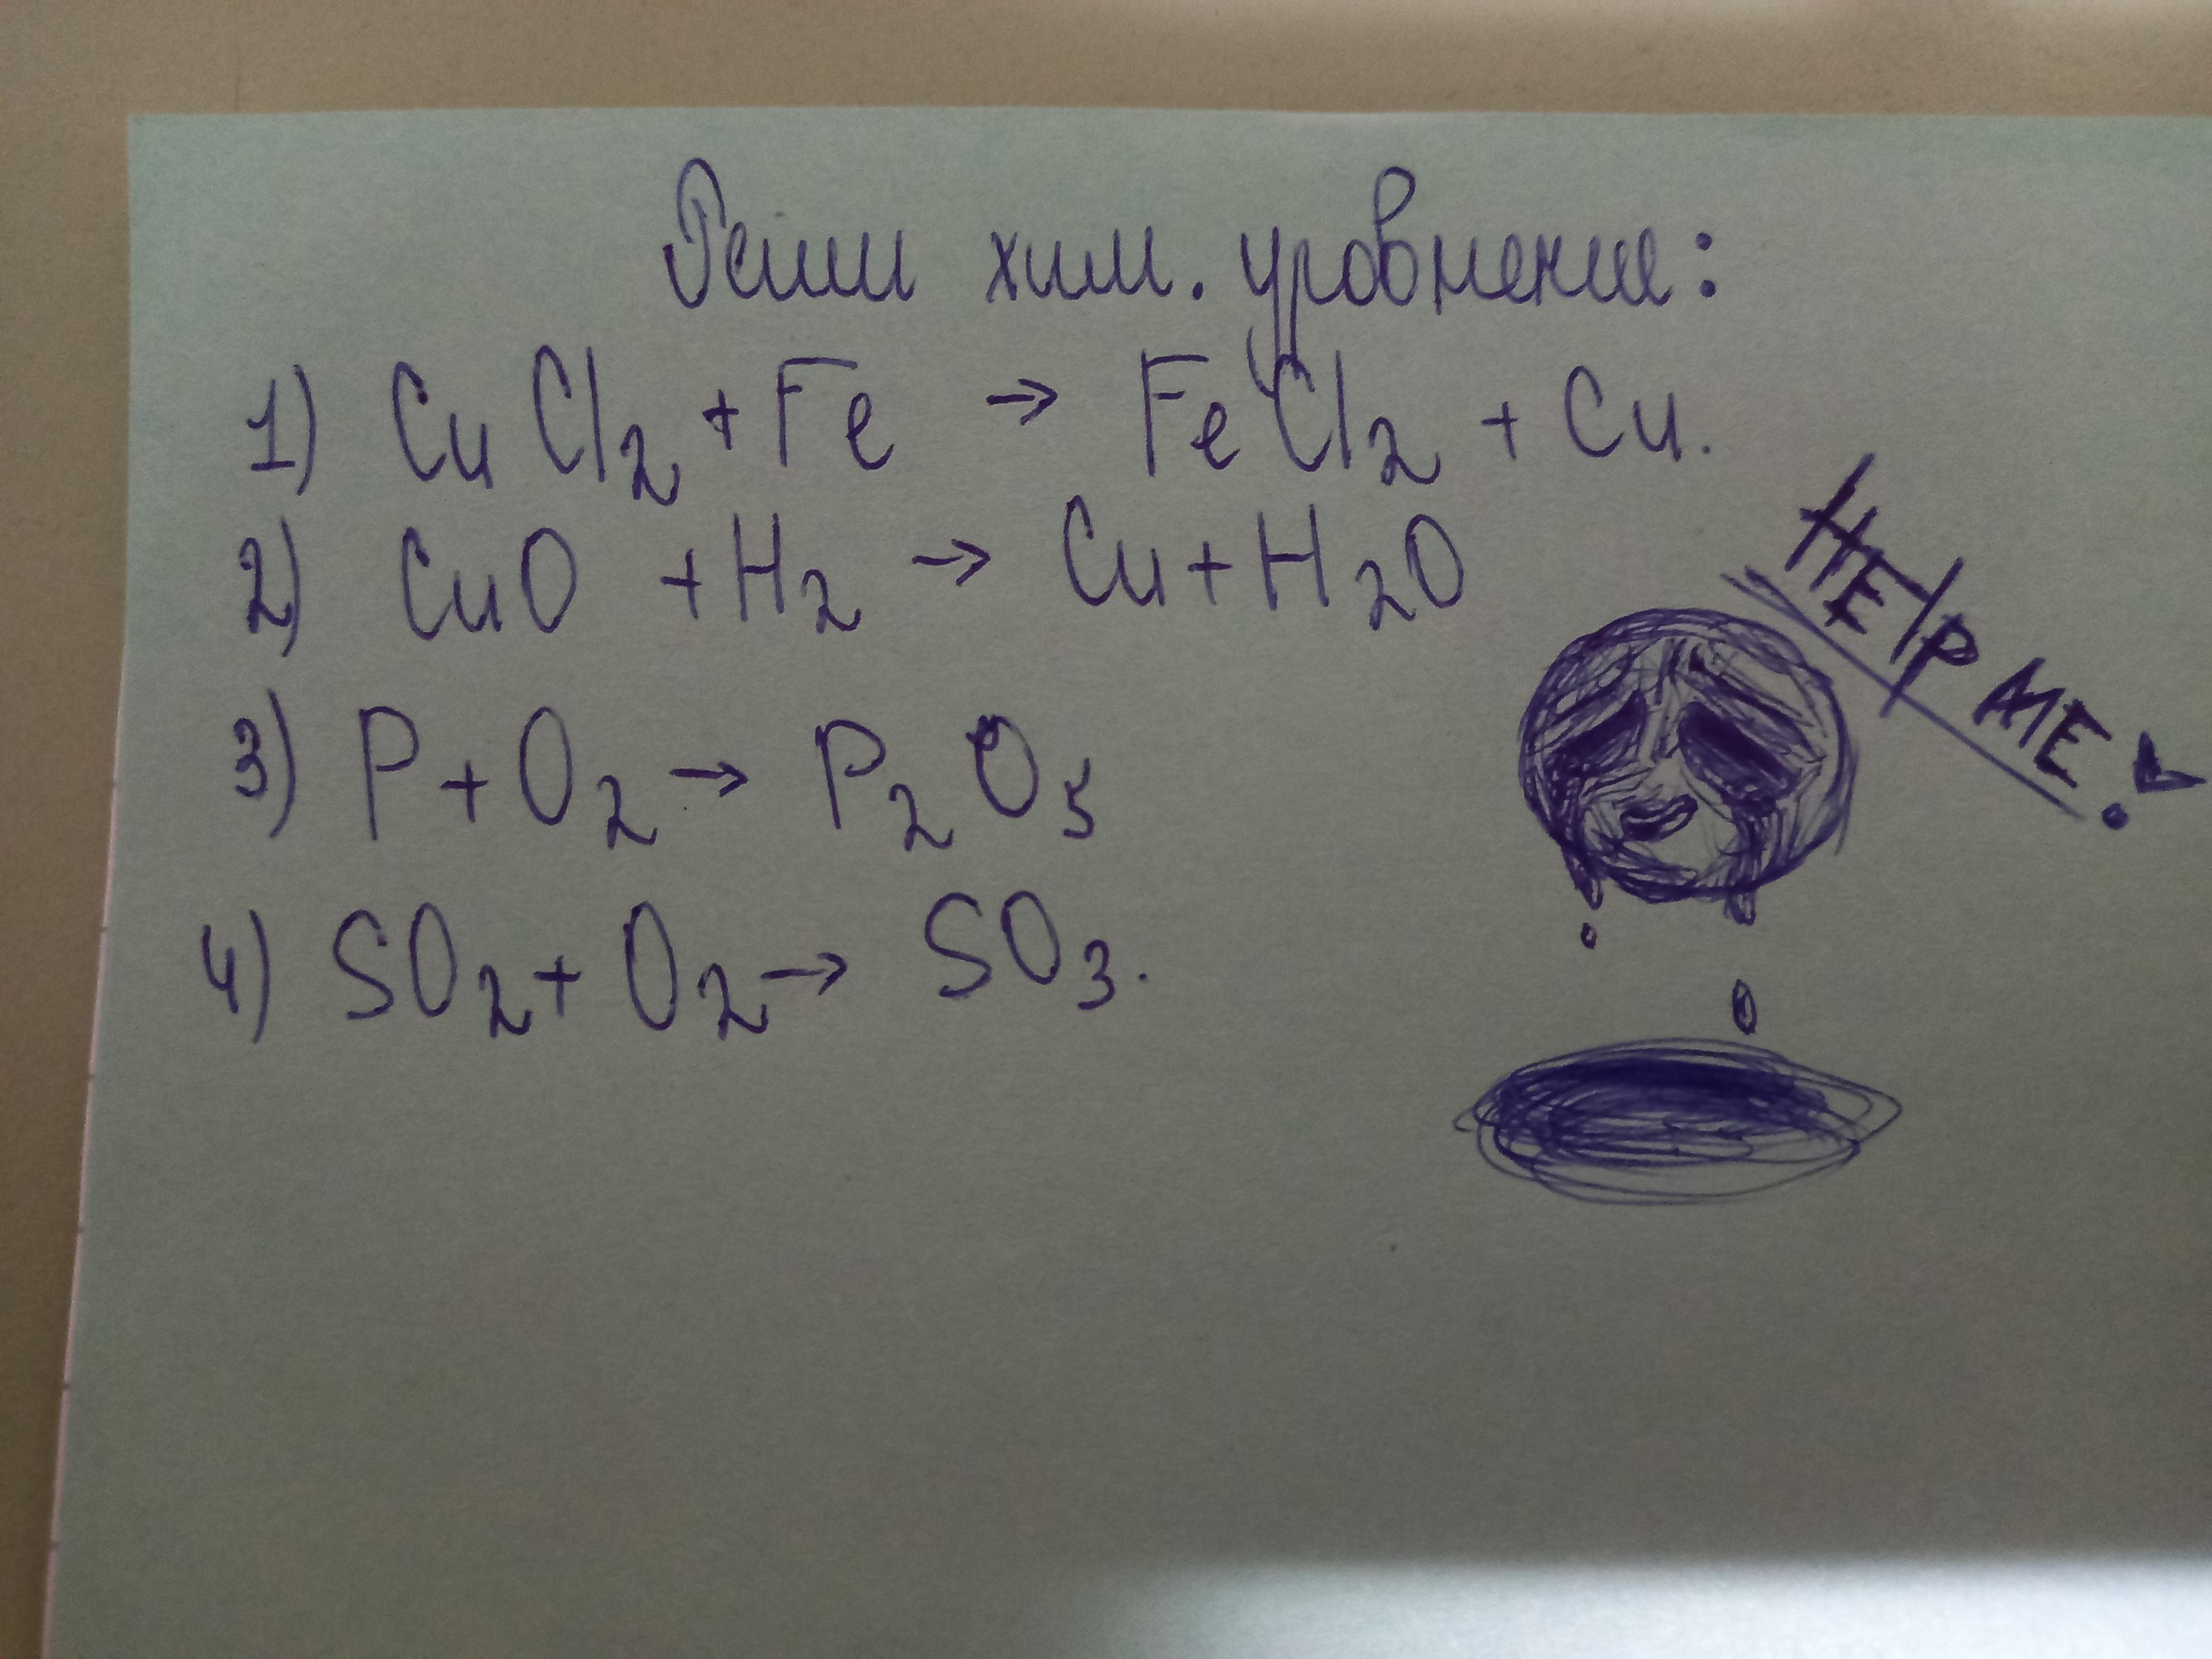 Реши хим. уровнение:
1) CuCl₂ + Fe → FeCl₂ + Cu.
2) CuO + H₂ → Cu + H₂O
3) P + O₂ → P₂O₅
4) SO₂ + O₂ → SO₃.
HElP ME!